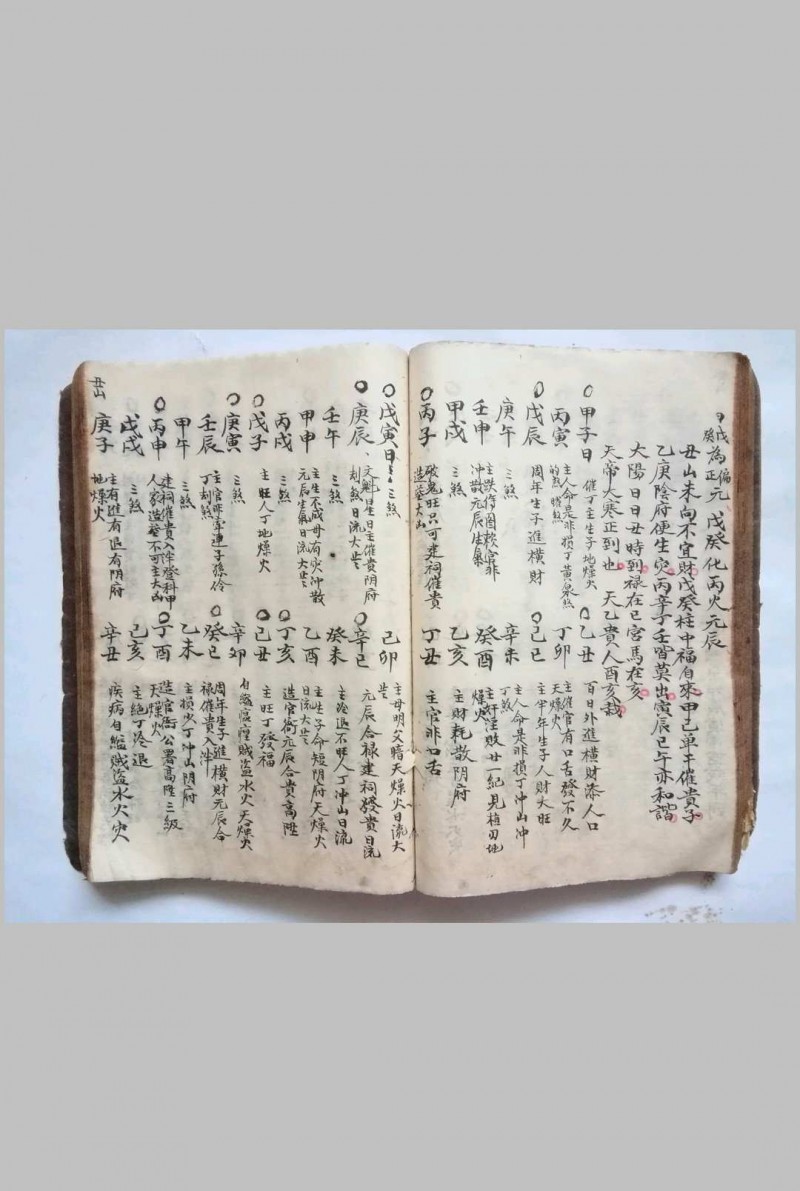 戊癸為正偏元 戊癸化丙火元辰
丑山未向不宜財戊癸柱中福自來甲己單干催貴子
乙庚陰府便生灾丙辛丁壬皆莫出寅辰巳午亦和諧
太陽日日丑時到禄在巳宮馬在亥
天帝大寒正到也 天乙貴人酉亥哉
甲子日 催丁主生子地燥火
乙丑 百日外進橫財添人口
丙寅 主人命是非損丁黃泉煞
丁卯 主催官有口舌發不久天燥火
戊辰 周年生子進橫財
己巳 主半年生子人財大旺
庚午 三煞
辛未 主人命是非損丁冲山冲丁煞
壬申 主跌傷圖賴官非冲散元辰生氣
癸酉 主奸淫敗廿一紀見植田地燥火
甲戌 三煞
乙亥 主財耗散阴府
丙子 破鬼旺只可建祠催貴造塟大凶
丁丑 主官非口舌
戊寅日 三煞
己卯 主母明父暗天燥火日流大㞢
庚辰 文魁星日主催貴阴府刦煞日流大㞢
辛巳 元辰合禄建祠發貴日流
壬午 三煞
癸未 主冷退不旺人丁冲山日流
甲申 主生不成母有灾冲散元辰生氣日流大㞢
乙酉 主生子命短阴府天燥火日流大㞢
丙戌 三煞
丁亥 造官衙元辰合貴高陞
戊子 主旺人丁地燥火
己丑 主旺丁發福
庚寅 三煞
辛卯 自縊瘟㾮賊盜水火天燥火
壬辰 主官非牽連子孫伶丁刦煞
癸巳 周年生子進橫財元辰合禄催貴入泮
甲午 三煞
乙未 主損少丁冲山阴府
丙申 建祠催貴入泮登科甲人家造塟不可主大凶
丁酉 造官衙公署高陞三級天燥火
戊戌 三煞
己亥 主絶丁冷退
庚子 主有進有退有阴府地燥火
辛丑 疾病自縊賊盜水火灾
丑山